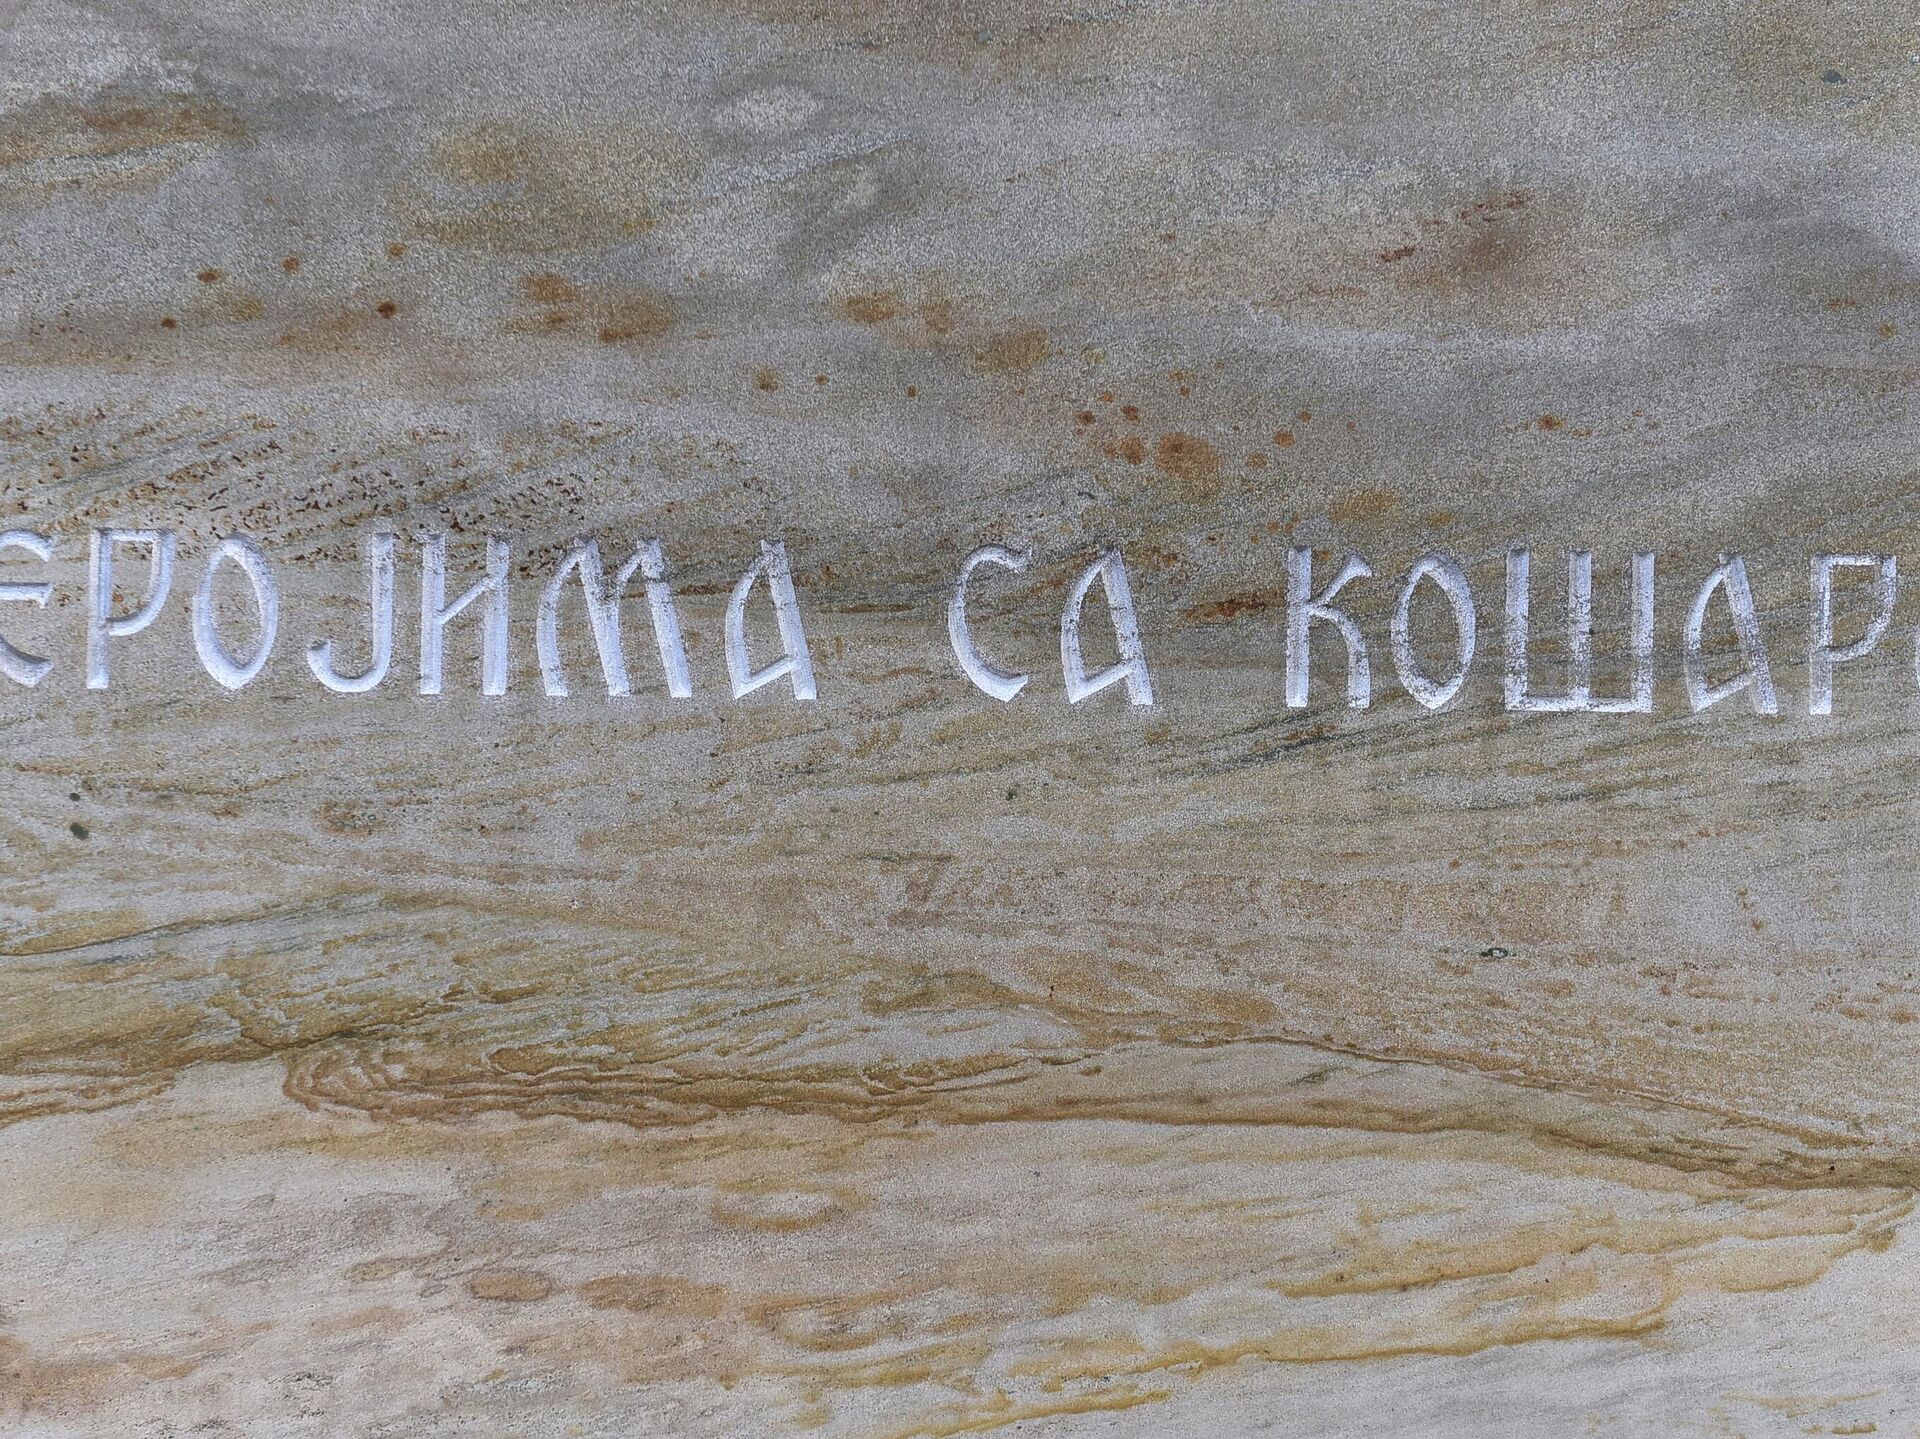 ЕРОЈИМА СА КОШАР